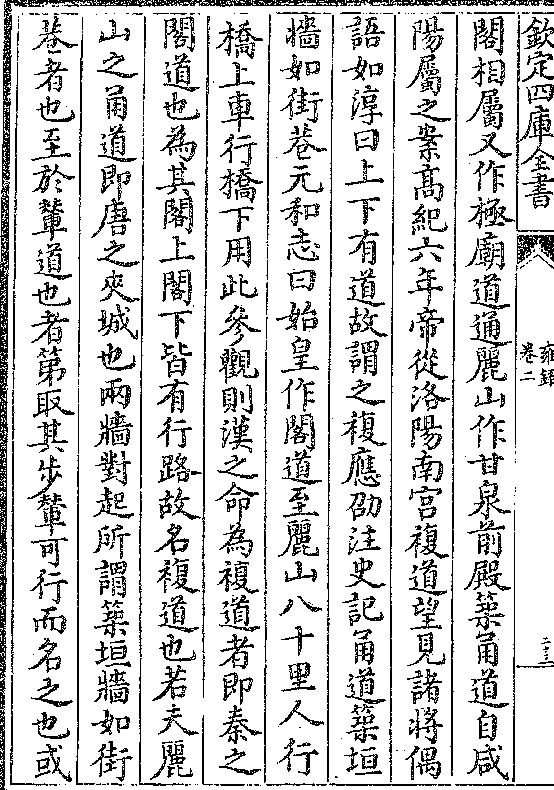 欽定四庫全書
雍録
卷二
二三
閣相屬又作極廟道通麗山作甘泉前殿築甬道自咸
陽屬之案高紀六年帝從洛陽南宮複道望見諸將偶
語如淳曰上下有道故謂之複應劭注史記甬道築垣
牆如街巷元和志曰始皇作閣道至麗山八十里人行
橋上車行橋下用此參觀則漢之命為複道者即秦之
閣道也為其閣上閣下皆有行路故名複道也若夫麗
山之甬道即唐之夾城也兩牆對起所謂築垣牆如街
巷者也至於輦道也者第取其步輦可行而名之也或